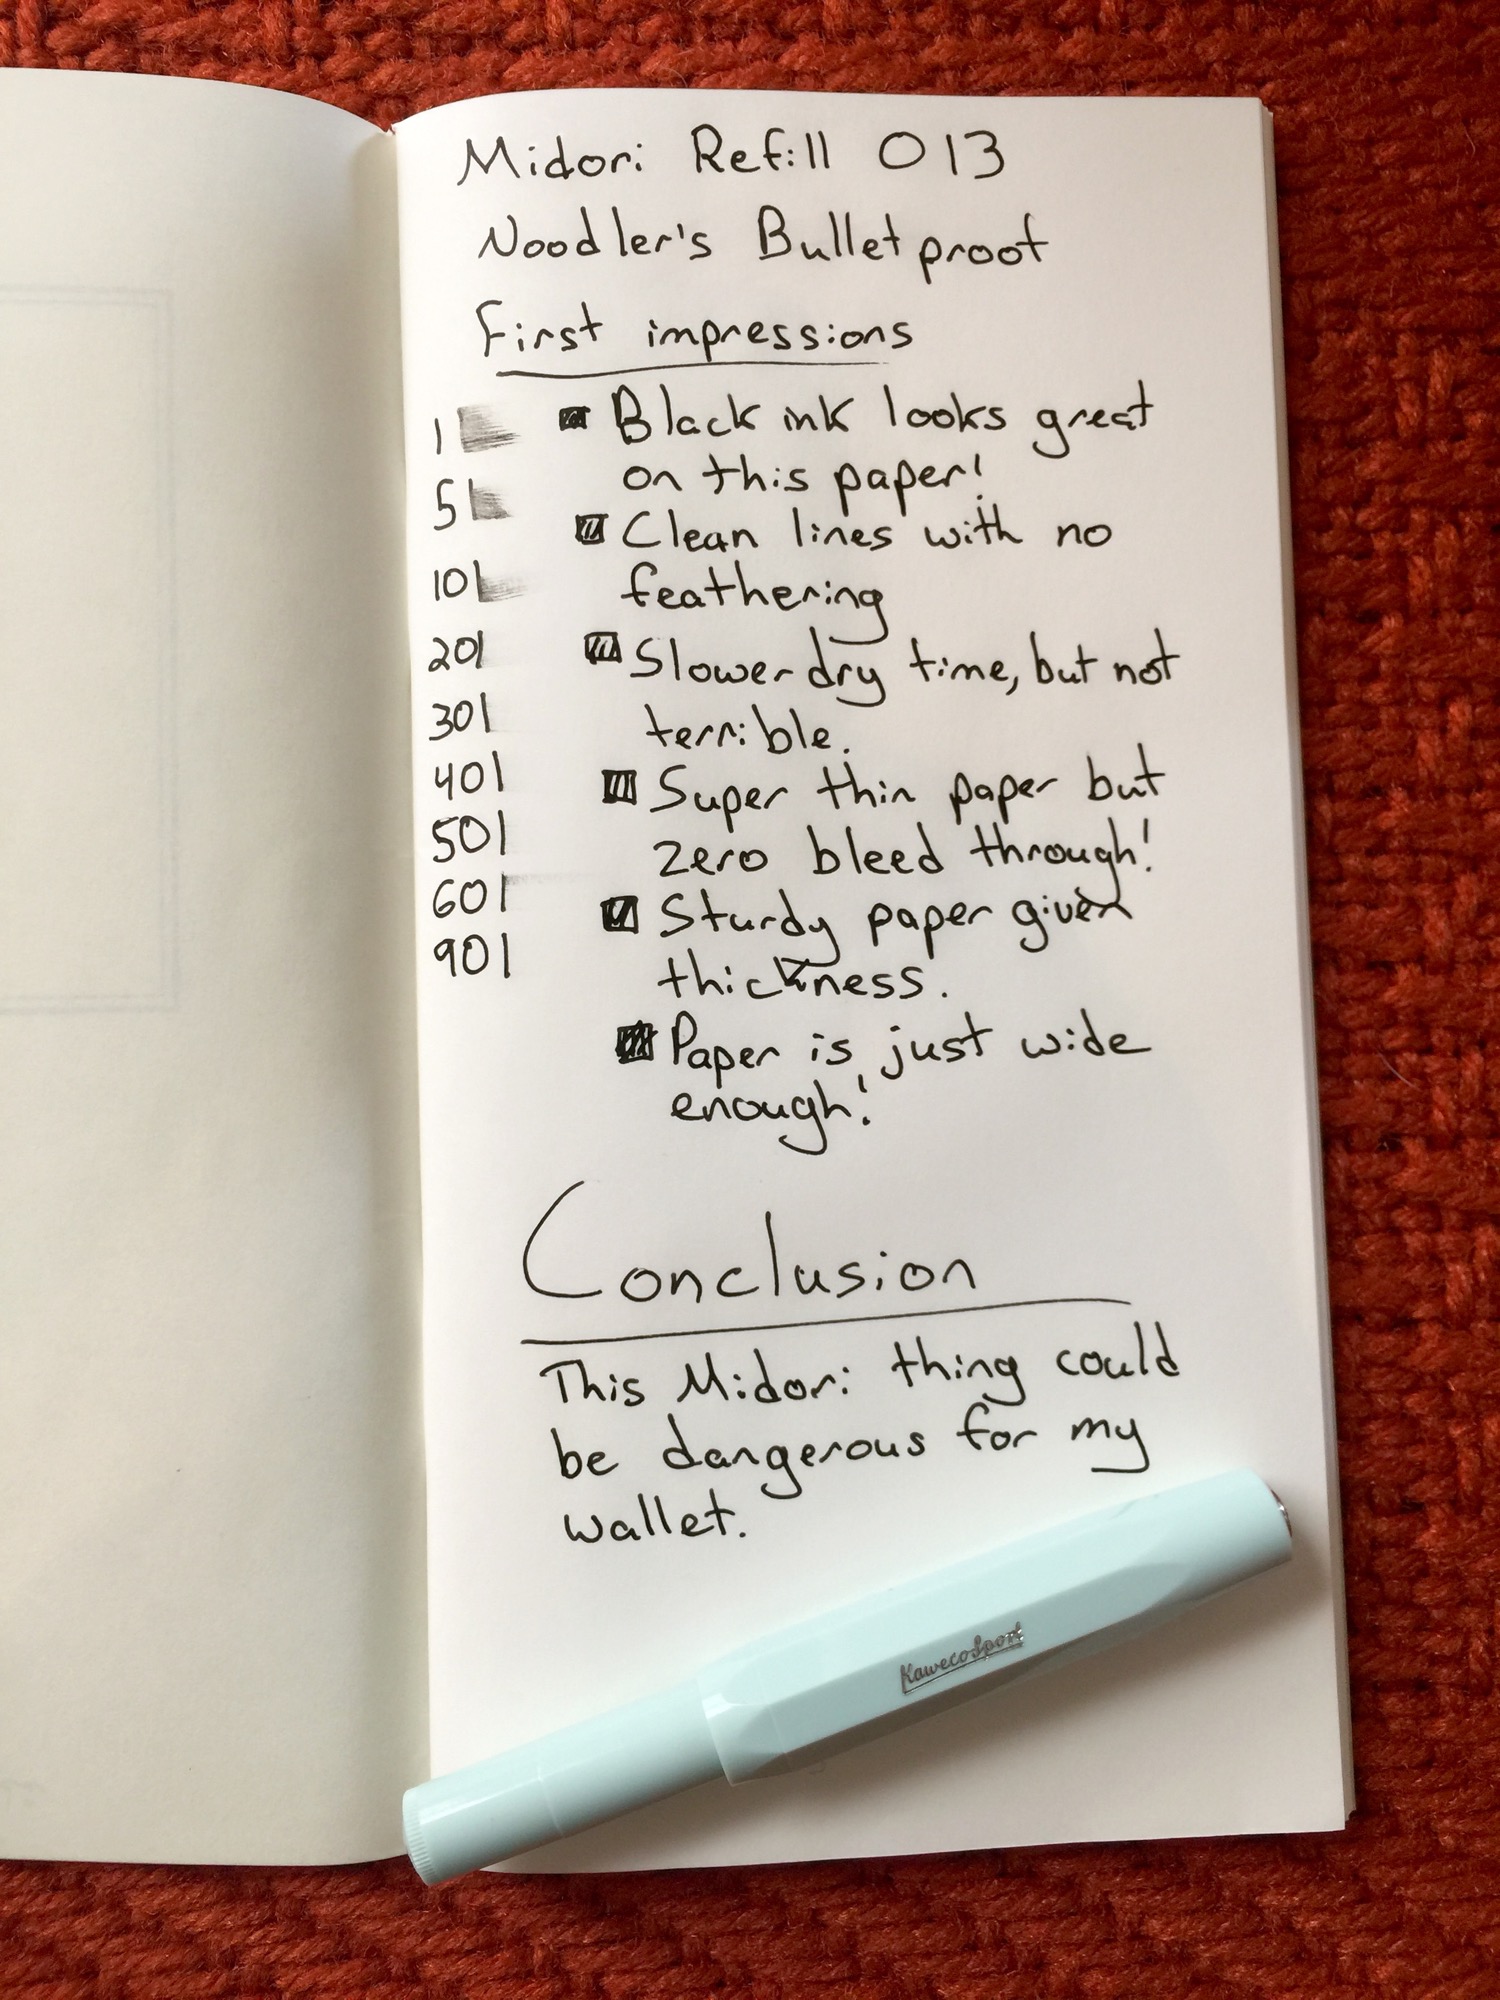 Midori Refill 013
Noodler's Bulletproof
First impressions
1
5
10
20
30
40
50
60
90
Black ink looks great
on this paper!
Clean lines with no
feathering
Slower dry time, but not
terrible.
Super thin paper but
zero bleed through!
Sturdy paper given
thickness.
Paper is just wide
enough!
Conclusion
This Midori thing could
be dangerous for my
wallet.
KawecoSport